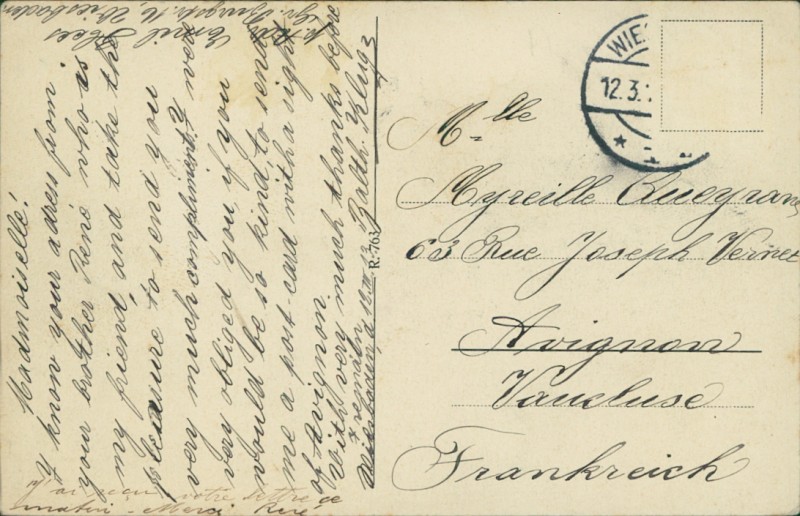 Madmoiselle!
Y know your adress from
your brother René who is
my friend, and take the
pleasure to send you
very much compliments. Y were
very obliged you if you
would be so kind, to send
me a post-card with a sight
of Avignon.
With very much thanks before
Y remain
Wiesbaden, d 12.III.13 Balth. Klug
p. Adr Emil Hees
Gr. Burgstr. 16, Wiesbaden
J'ai reçu votre lettre ce
matin - Merci René
R. 763
WIES
12.3.
Mlle
Myreille Queyran
63 Rue Joseph Vernet
Avignon
Vaucluse
Frankreich